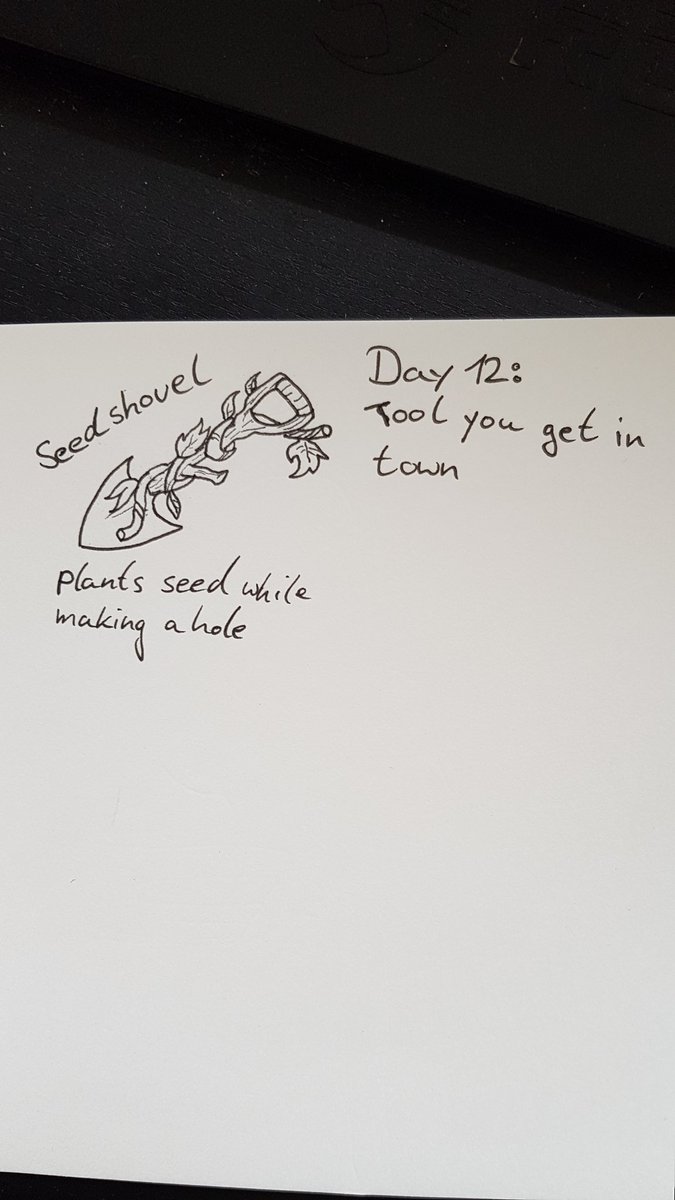 Seedshovel
Day 12:
Tool you get in
town
plants seed while
making a hole